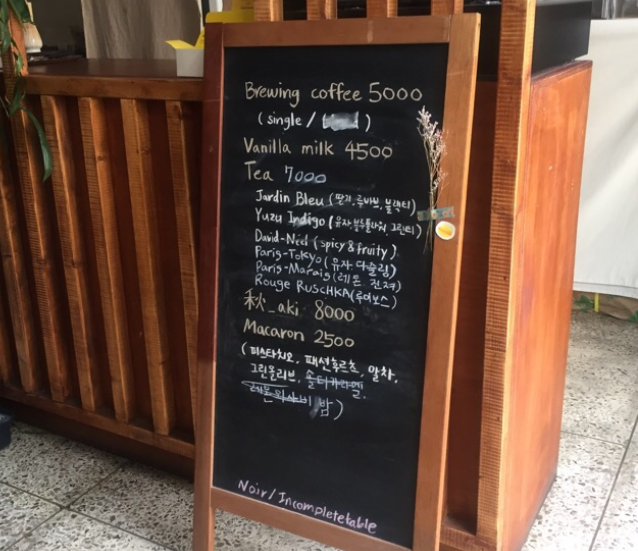 Brewing coffee 5000
(single / )
Vanilla milk 4500
Tea 7000
Jardin Bleu (딸기, 루바브, 블랙티)
Yuzu Indigo (유자 블루플라워 그린티)
David-Ned (spicy & fruity)
Paris-Tokyo (유자 다즐링)
Paris-Marais (레몬 진저)
Rouge RUSCHKA (루이보스)
秋_aki 8000
Macaron 2500
(피스타치오, 패션후르츠, 말차,
그린올리브, 솔티카라멜,
레몬와사비 밤)
Noir / Incompletetable